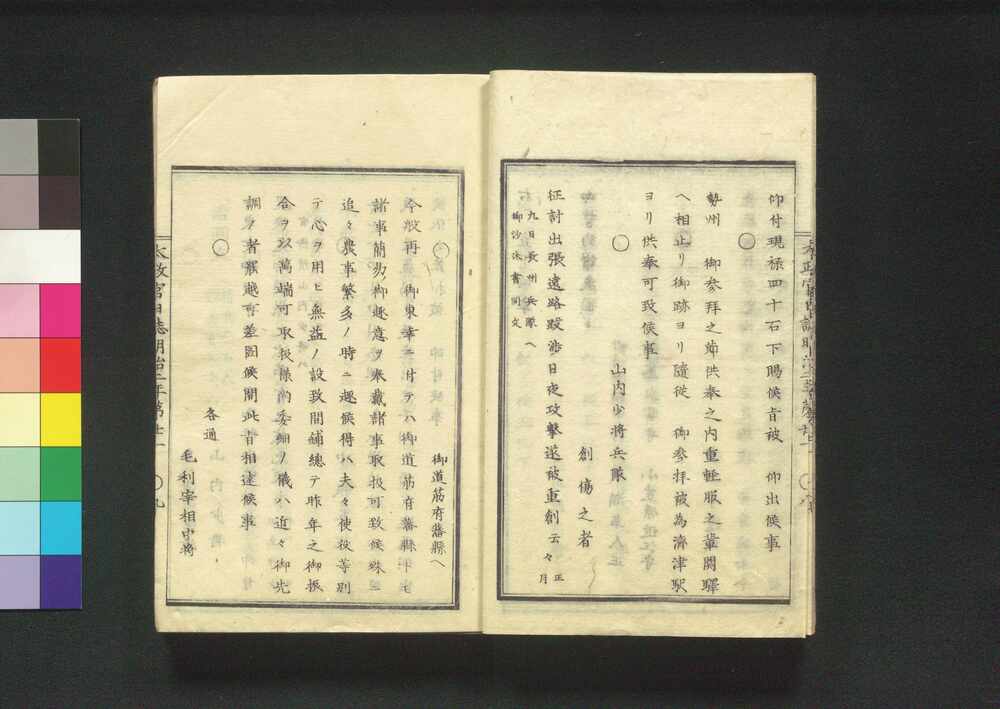 仰付現禄四十石下賜候旨被　仰出候事
○
勢州　御参拜之節供奉之内重輕服之輩関驛
ヘ相止リ御跡ヨリ隨從　御参拜被為濟津駅
ヨリ供奉可致候事
○　山内少将兵隊
創傷之者
征討出張遠路跋渉日夜攻撃遂被重創云々正月
九日長州兵隊ヘ
御沙汰書同文
御道筋府藩縣ヘ
○
今般再　御東幸ニ付テハ御道筋府藩縣ニ
諸事簡易ノ御趣意ヲ奉戴諸事取扱可致候殊ニ
追々農事繁多ノ時ニ趣候得ハ夫々使役等別
テ心ヲ用ヒ無益ノ設致間鋪總テ昨年之御振
合ヲ以萬端可取扱様尚委細ノ儀ハ近々御先
調ノ者罷越可差図候間此旨相達候事
○
各通
毛利宰相中将
太政官日誌明治二年第廿一　○九